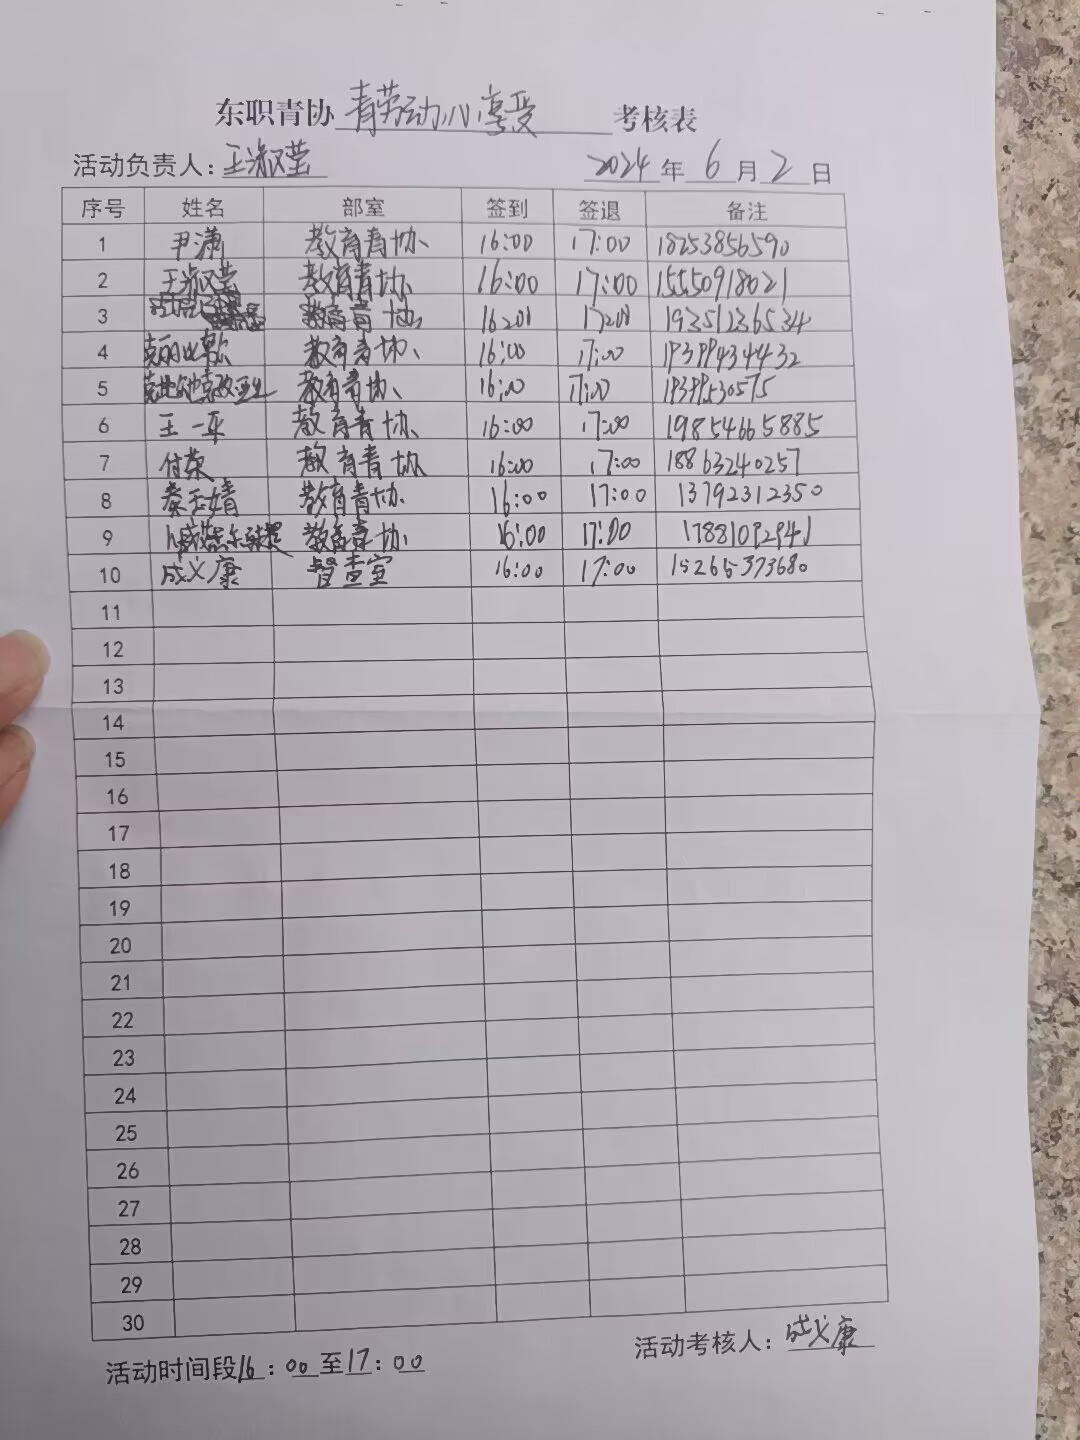 东职青协 青劳动心享受 考核表
活动负责人：王淑莹 2024年6月2日
序号 姓名 部室 签到 签退 备注
1 尹潇 教育青协 16:00 17:00 18253856590
2 王淑莹 教育青协 16:00 17:00 15550918021
3 教育青协 16:00 17:00 19351236534
4 教育青协 16:00 17:00 19399434432
5 教育青协 16:00 17:00 19399530575
6 王一平 教育青协 16:00 17:00 19854665885
7 付荣 教育青协 16:00 17:00 18863240257
8 秦玉婧 教育青协 16:00 17:00 13792312350
9 教育青协 16:00 17:00
10 成义康 督查室 16:00 17:00 15265373680
11
12
13
14
15
16
17
18
19
20
21
22
23
24
25
26
27
28
29
30
活动时间段16:00至17:00 活动考核人：成义康